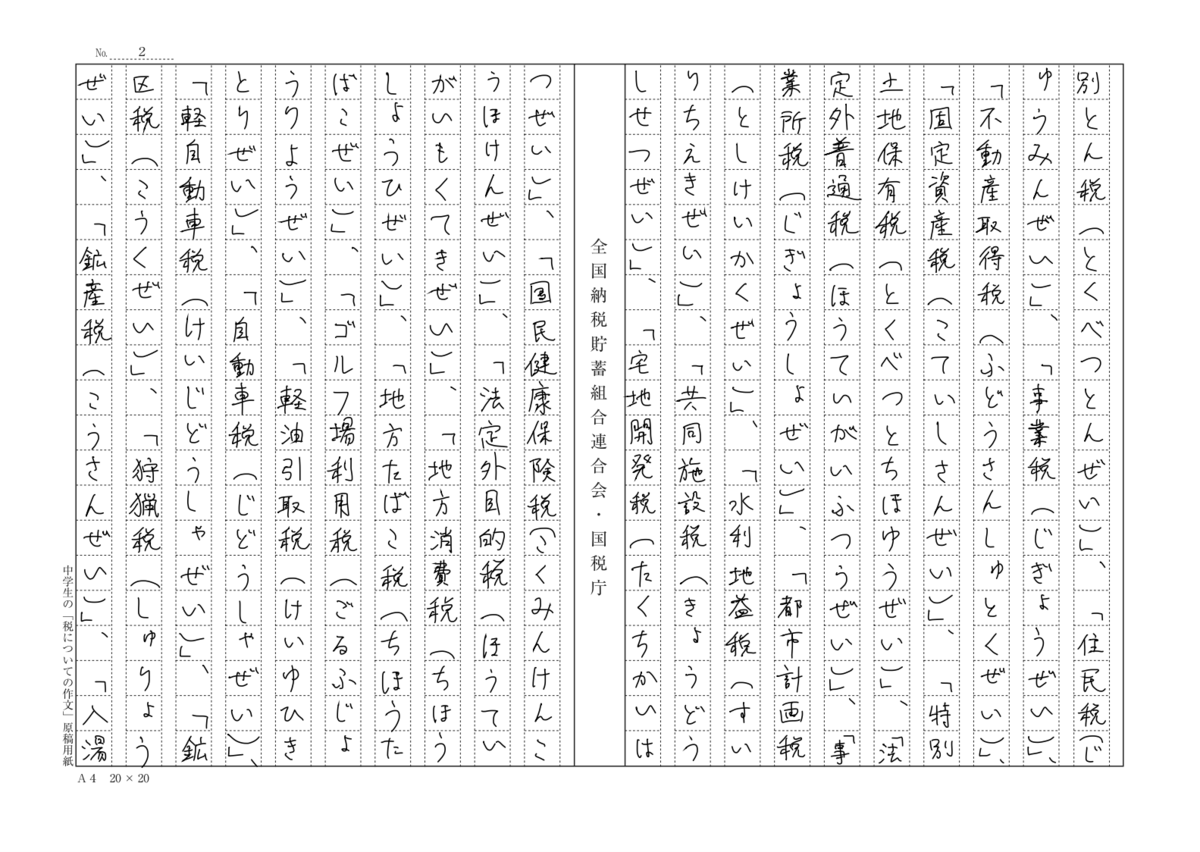 № 2
別とん税（とくべつとんぜい）」、「住民税（じ
ゅうみんぜい）」、「事業税（じぎょうぜい）」、
「不動産取得税（ふどうさんしゅとくぜい）」、
「固定資産税（こていしさんぜい）」、「特別
土地保有税（とくべつとちほゆうぜい）」、「法
定外普通税（ほうていがいふつうぜい）」、「事
業所税（じぎょうしょぜい）」、「都市計画税
（としけいかくぜい）」、「水利地益税（すい
りちえきぜい）」、「共同施設税（きょうどう
しせつぜい）」、「宅地開発税（たくちかいは
全国納税貯蓄組合連合会・国税庁
つぜい）」、「国民健康保険税（こくみんけんこ
うほけんぜい）」、「法定外目的税（ほうてい
がいもくてきぜい）」、「地方消費税（ちほう
しょうひぜい）」、「地方たばこ税（ちほうた
ばこぜい）」、「ゴルフ場利用税（ごるふじょ
うりようぜい）」、「軽油引取税（けいゆひき
とりぜい）」、「自動車税（じどうしゃぜい）」、
「軽自動車税（けいじどうしゃぜい）」、「鉱
区税（こうくぜい）」、「狩猟税（しゅりょう
ぜい）」、「鉱産税（こうさんぜい）」、「入湯
中学生の「税についての作文」原稿用紙
A4 20×20